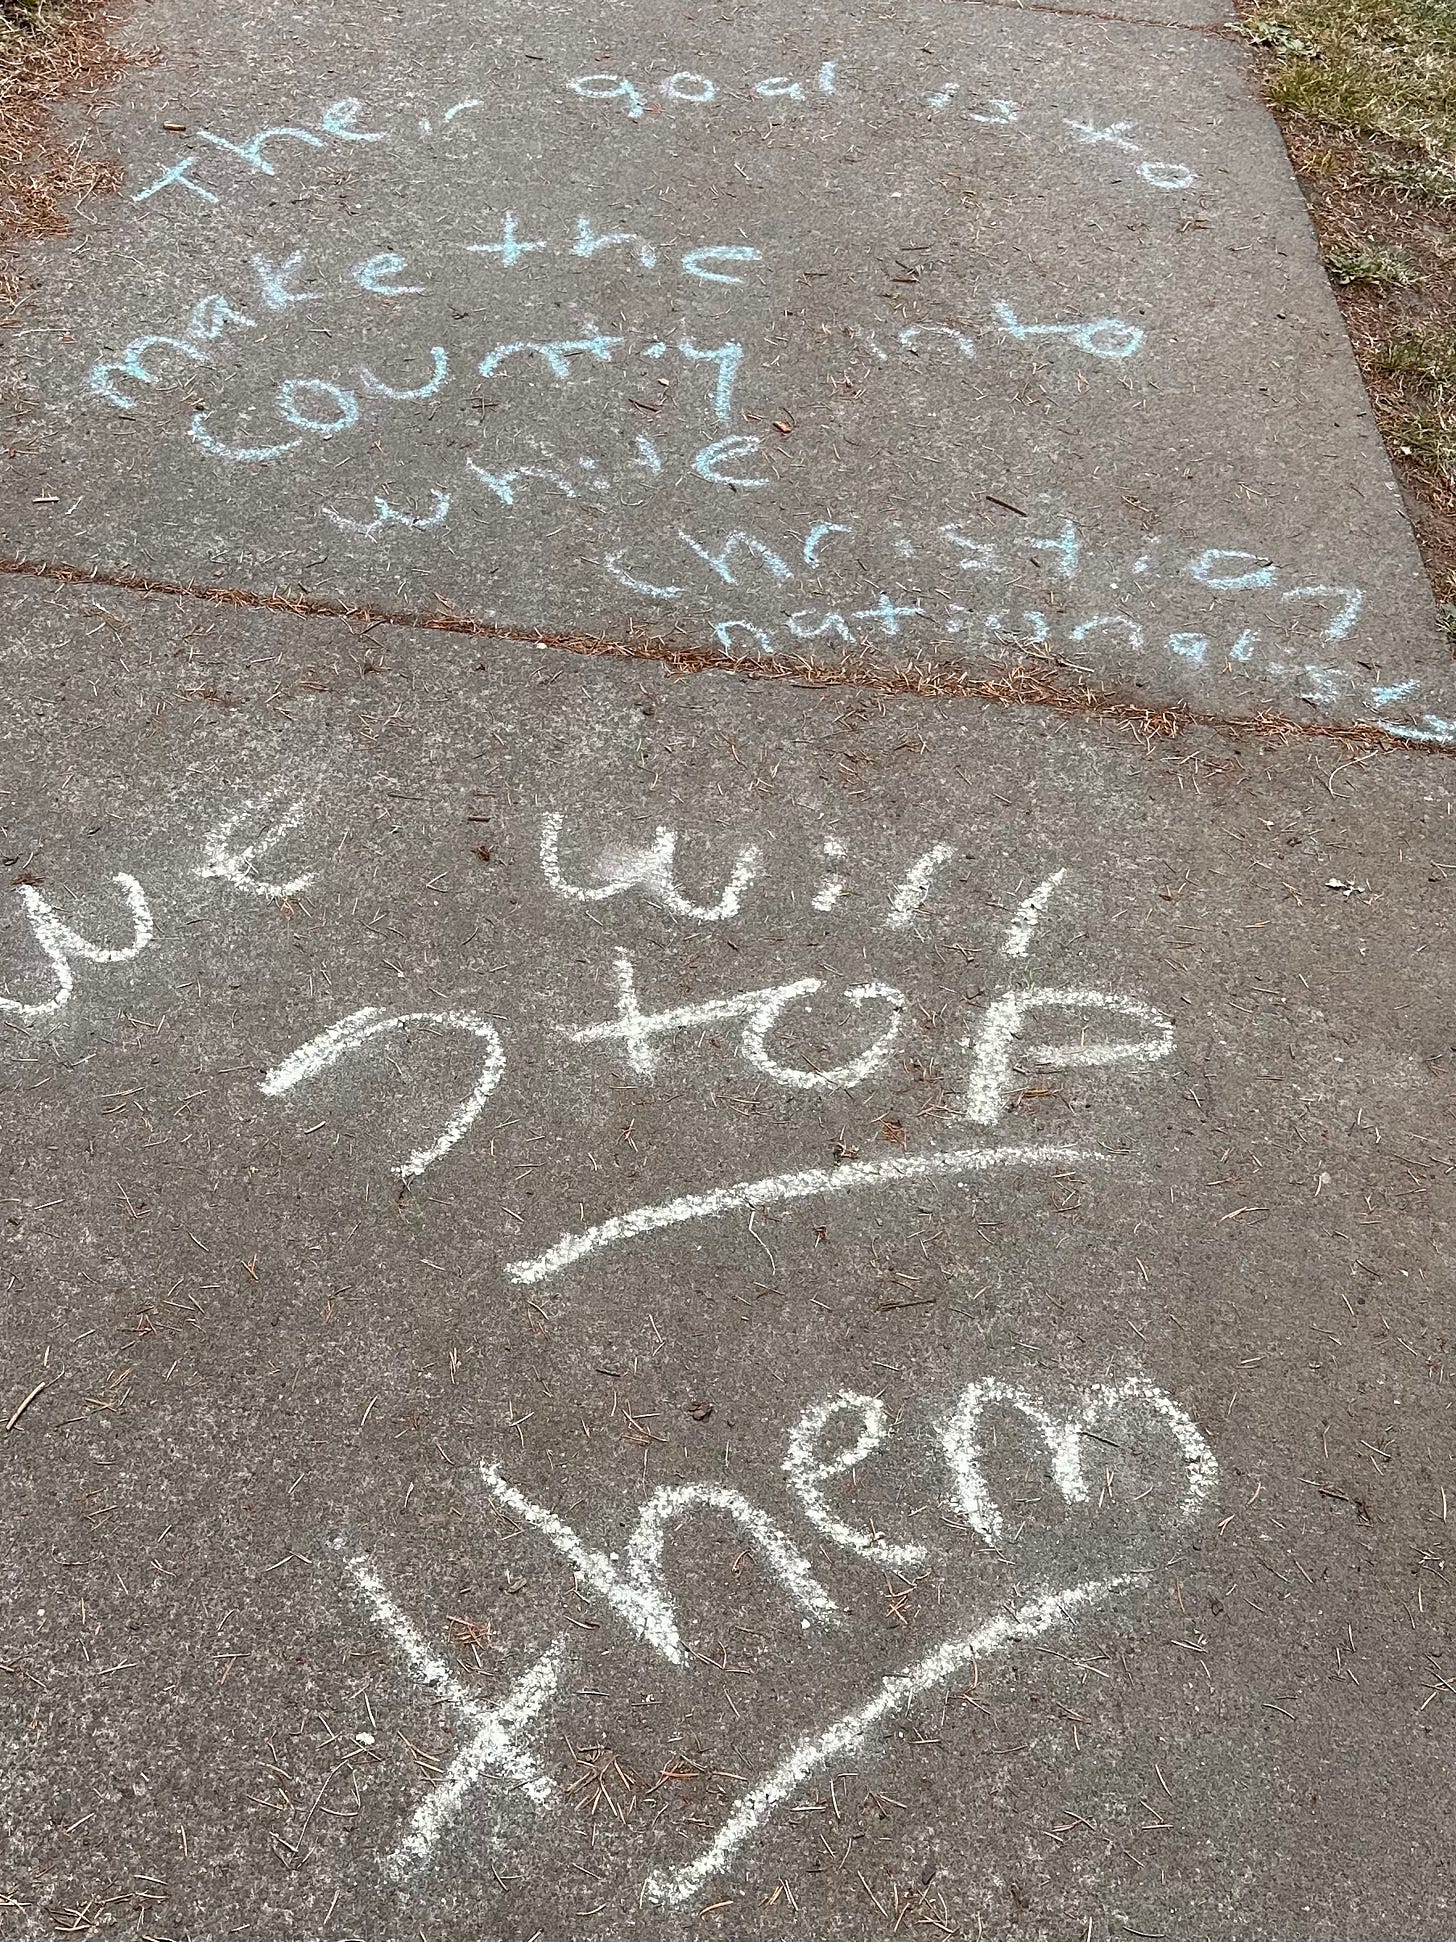 Their goal is to
make the
Country into
white
christian
nationalist
we will
stop
them